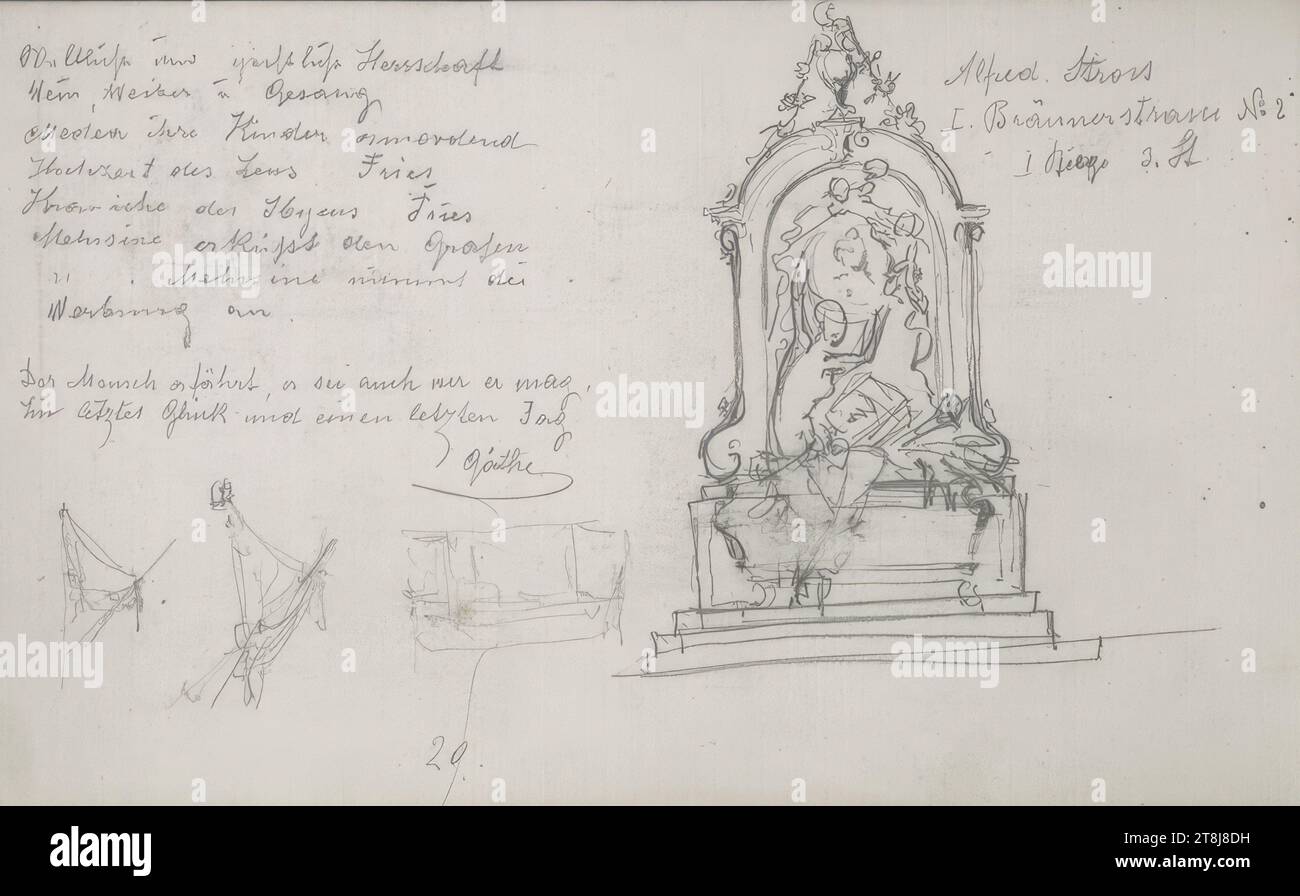 Weltliche und geistliche Herrschaft
Wein, Weiber u Gesang
Medea ihre Kinder ermordend
Hochzeit des Zeus Fries
des Fries
Melusine erküßt den Grafen
" . Melusine nimmt die
Werbung an.
Der Mensch erfährt, er sei auch wer er mag,
Ein letztes Glück und einen letzten Tag
Göthe
29.
Alfred. Stross
I. Bräunerstrasse No: 2
I Stiege 3. St
alamy
Image ID: 2T8J8DH
www.alamy.com